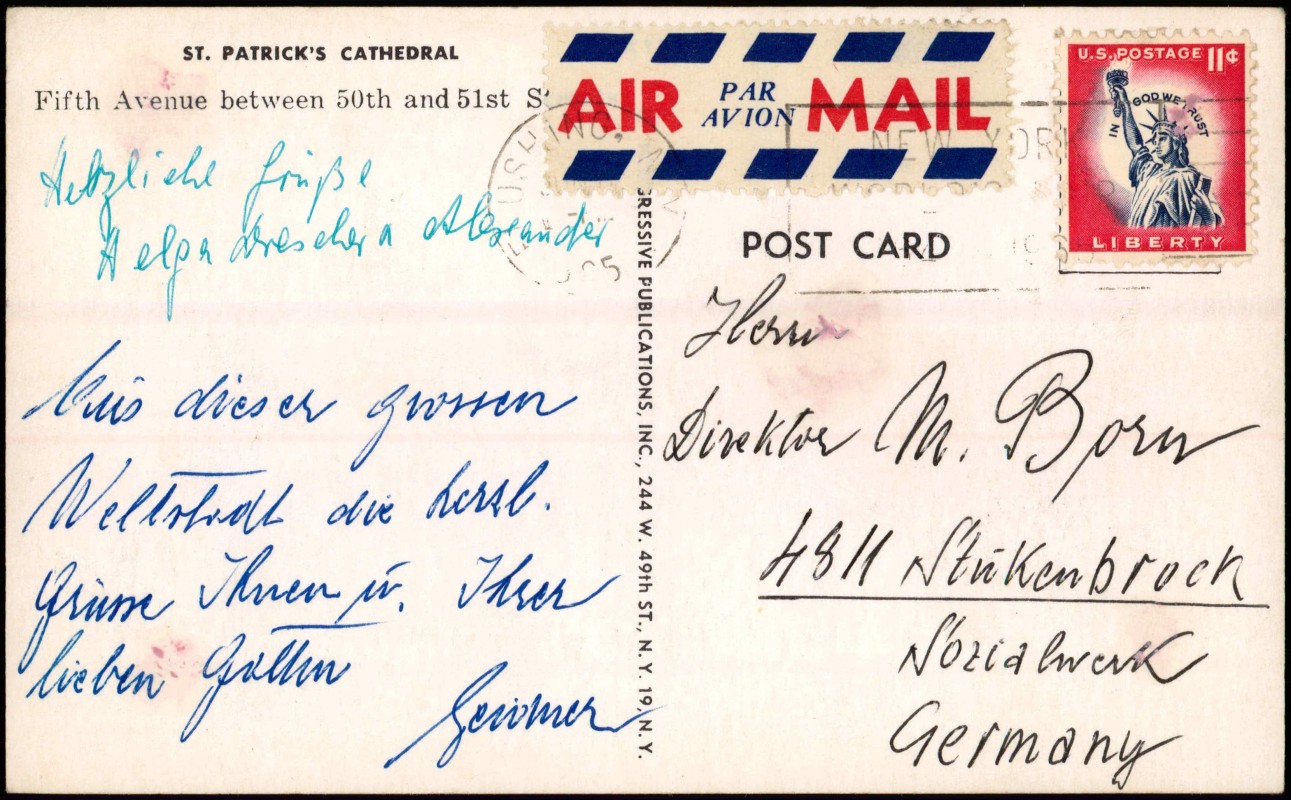 ST. PATRICK'S CATHEDRAL
Fifth Avenue between 50th and 51st S
Herzliche Grüße
Helga Alexander
Aus dieser grossen
Weltstadt die herzl.
Grüsse Ihnen u. Ihrer
lieben Gattin
AIR PAR AVION MAIL
FLUSHING, N.Y.
NEW YORK
U.S. POSTAGE 11¢
IN GOD WE TRUST
LIBERTY
GRESSIVE PUBLICATIONS, INC., 244 W. 49th ST., N.Y. 19, N.Y.
POST CARD
Herrn
Direktor M. Born
4811 Stukenbrock
Sozialwerk
Germany